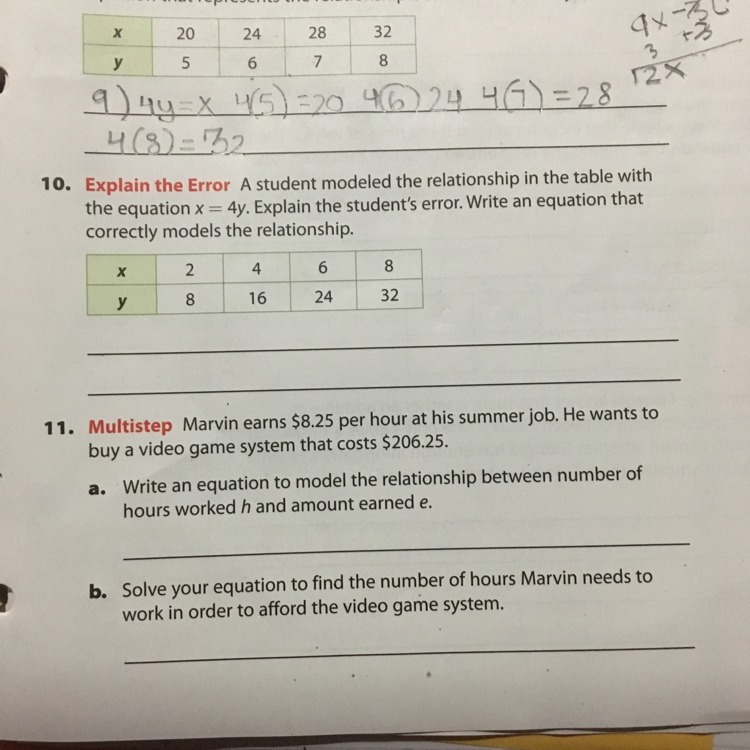 x 20 24 28 32
y 5 6 7 8
9) 4y=x 4(5)=20 4(6)24 4(7)=28
4(8)=32
3 +3
12x
10. Explain the Error A student modeled the relationship in the table with
the equation x = 4y. Explain the student's error. Write an equation that
correctly models the relationship.
x 2 4 6 8
y 8 16 24 32
11. Multistep Marvin earns $8.25 per hour at his summer job. He wants to
buy a video game system that costs $206.25.
a. Write an equation to model the relationship between number of
hours worked h and amount earned e.
b. Solve your equation to find the number of hours Marvin needs to
work in order to afford the video game system.